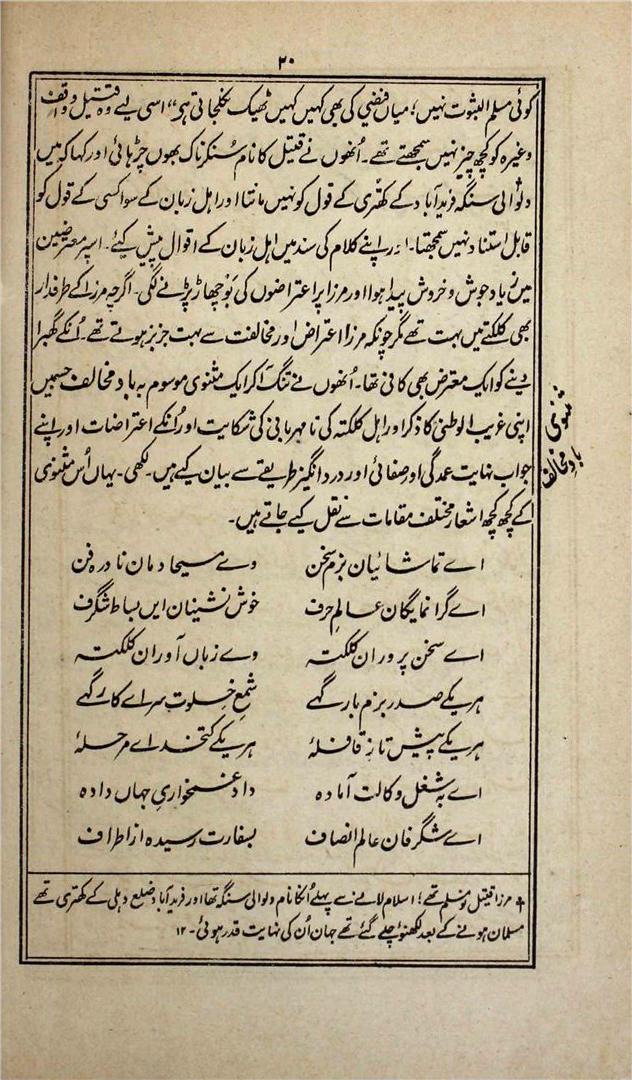 ۲۰
کوئی مسلم الثبوت نہیں؛ میاں فیضی کی بھی کہیں کہیں ٹھیک نکلجاتی ہے" اسی لیے وہ قتیل و واقف
وغیرہ کو کچھ چیز نہیں سمجھتے تھے۔ اُنھوں نے قتیل کا نام سُنکر ناک بھوں چڑہائی اور کہا کہ میں
دلوالی سنگہ فرید آباد کے کھتری کے قول کو نہیں مانتا اور اہل زبان کے سوا کسی کے قول کو
قابل استناد نہیں سمجھتا۔ اور اپنے کلام کی سند میں اہل زبان کے اقوال پیش کیے۔ اسپر معترضین
میں زیادہ جوش و خروش پیدا ہوا اور مرزا پر اعتراضوں کی بوچھاڑ پڑنے لگی۔ اگرچہ مرزا کے طرفدار
بھی کلکتے میں بہت تھے مگر چونکہ مرزا اعتراض اور مخالفت سے بہت جزبز ہوتے تھے۔ اُنکے گھبرا
دینے کو ایک معترض بھی کافی تھا۔ اُنھوں نے تنگ آکر ایک مثنوی موسوم بہ باد مخالف جسمیں
اپنی غریب الوطنی کا ذکر اور اہل کلکتہ کی نامہربانی کی شکایت اور اُنکے اعتراضات اور اپنے
جواب نہایت عمدگی اور صفائی اور درد انگیز طریقے سے بیان کیے ہیں۔ لکھی۔ یہاں اُس مثنوی
کے کچھ کچھ اشعار مختلف مقامات سے نقل کیے جاتے ہیں۔
مثنوی
باد مخالف
اے تماشائیان بزم سخن وے مسیحا دمان نادرہ فن
اے گرانمایگان عالم حرف خوش نشینان ایں بساط شگرف
اے سخن پروران کلکتہ وے زباں آوران کلکتہ
ہر یکے صدر بزم بارگہے شمع خلوت سراے کارگہے
ہر یکے پیش تاز قافلۂ ہر یکے کتخداے مرحلۂ
اے بہ شغل وکالت آمادہ داد غمخواریِ جہاں دادہ
اے شگرفان عالم انصاف بسفارت رسیدہ از اطراف
† مرزا قتیل نو مسلم تھے؛ اسلام لانے سے پہلے اُنکا نام دلوالی سنگہ تھا اور فرید آباد ضلع دہلی کے کھتری تھے
مسلمان ہونے کے بعد لکھنؤ چلے گئے تھے جہان اُن کی نہایت قدر ہوئی۔ ۱۲